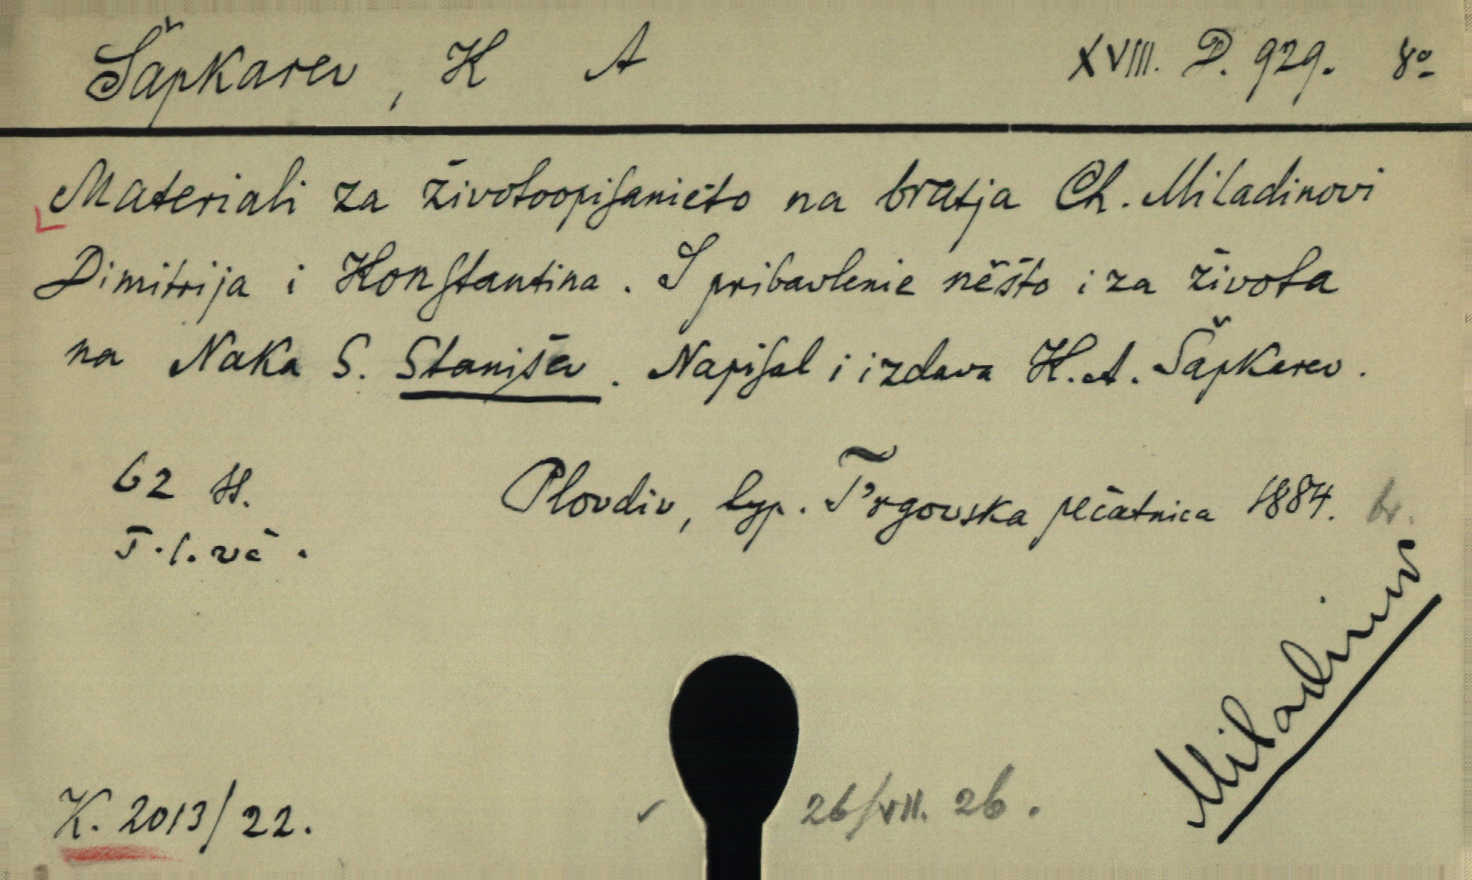 Šapkarev, K A XVIII. D. 929. 8º
Materiali za životoopisanieto na bratja Ch. Miladinovi
Dimitrija i Konstantina. S pribavlenie něšto i za života
na Naka S. Stanišev. Napisal i izdava K. A. Šapkarev.
62 ss.
Plovdiv, typ. T'rgovska pečatnica 1884. br.
Miladinov
K. 2013/22.
26/VII. 26.